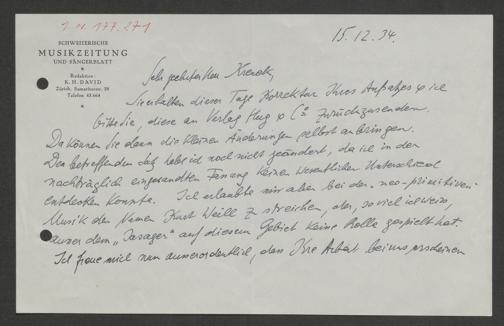 1.N.177.271
15.12.34.
SCHWEIZERISCHE
MUSIKZEITUNG
UND SÄNGERBLATT
Redaktion:
K. H. DAVID
Zürich, Samariterstr. 28
Telefon 43.664
Sehr geehrter Herr Krenek,
Sie erhalten dieser Tage Korrektur Ihres Aufsatzes & ich
bitte Sie, diese an Verlag Hug & Co zurückzusenden.
Da können Sie dann die kleinen Änderungen selbst anbringen.
Den betreffenden Satz habe ich noch nicht geändert, da ich in der
nachträglich eingesandten Fassung keinen wesentlichen Unterschied
entdecken konnte. Ich erlaubte mir aber bei der „neo-primitiven"
Musik den Namen Kurt Weill zu streichen, der, so viel ich weiss,
ausser dem „Jasager" auf diesem Gebiet keine Rolle gespielt hat.
Ich freue mich nun ausserordentlich, dass Ihre Arbeit bei uns erscheinen